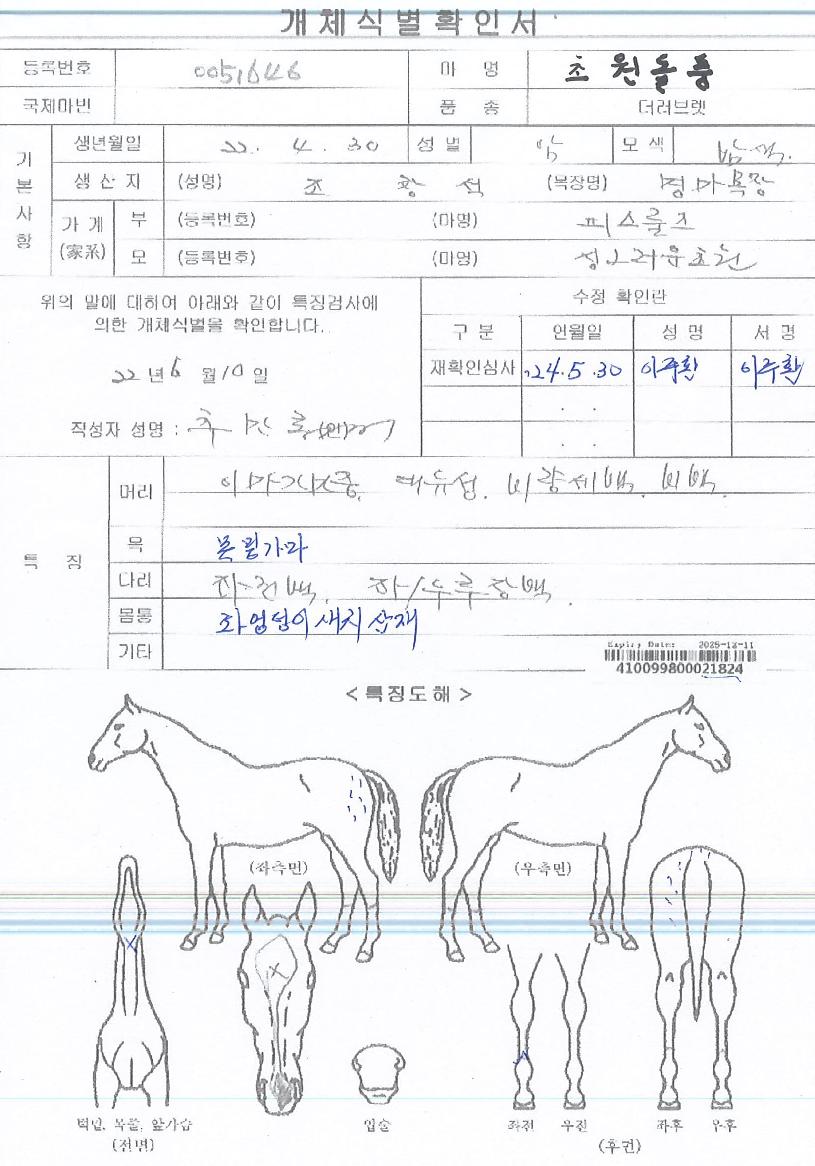 개체식별확인서
등록번호 0051646 마 명 초원돌풍
국제마번 품 종 더러브렛
기본사항
생년월일 22. 4. 30 성별 암 모색 밤색.
생산지 (성명) 조 창 석 (목장명) 명마목장
가계 (家系) 부 (등록번호) (마명) 피스룰즈
모 (등록번호) (마명) 성스러운초원
위의 말에 대하여 아래와 같이 특징검사에
의한 개체식별을 확인합니다.
22년 6월 10일
작성자 성명 :
수정 확인란
구 분 연월일 성 명 서 명
재확인심사 '24.5.30 이주환 이주환
특 징
머리 이마가마중, 대유성, 비량세백, 비백
목 목필가마
다리
몸통 좌엉덩이 새치 산재
기타
Expiry Date: 2025-12-11
410099800021824
<특징도해>
(좌측면) (우측면)
턱밑, 목줄, 앞가슴
(전면)
입술
좌전 우전 좌후 우후
(후견)